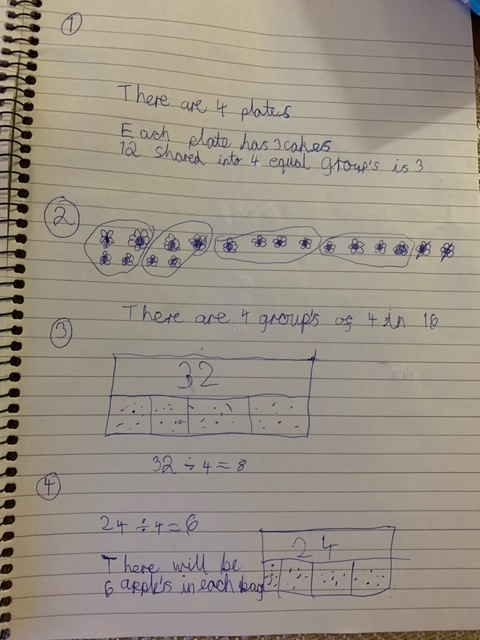 1
There are 4 plates
Each plate has 3 cakes
12 shared into 4 equal group's is 3
2
There are 4 group's of 4 in 16
3
32
32 ÷ 4 = 8
4
24 ÷ 4 = 6
24
There will be
6 apple's in each bag